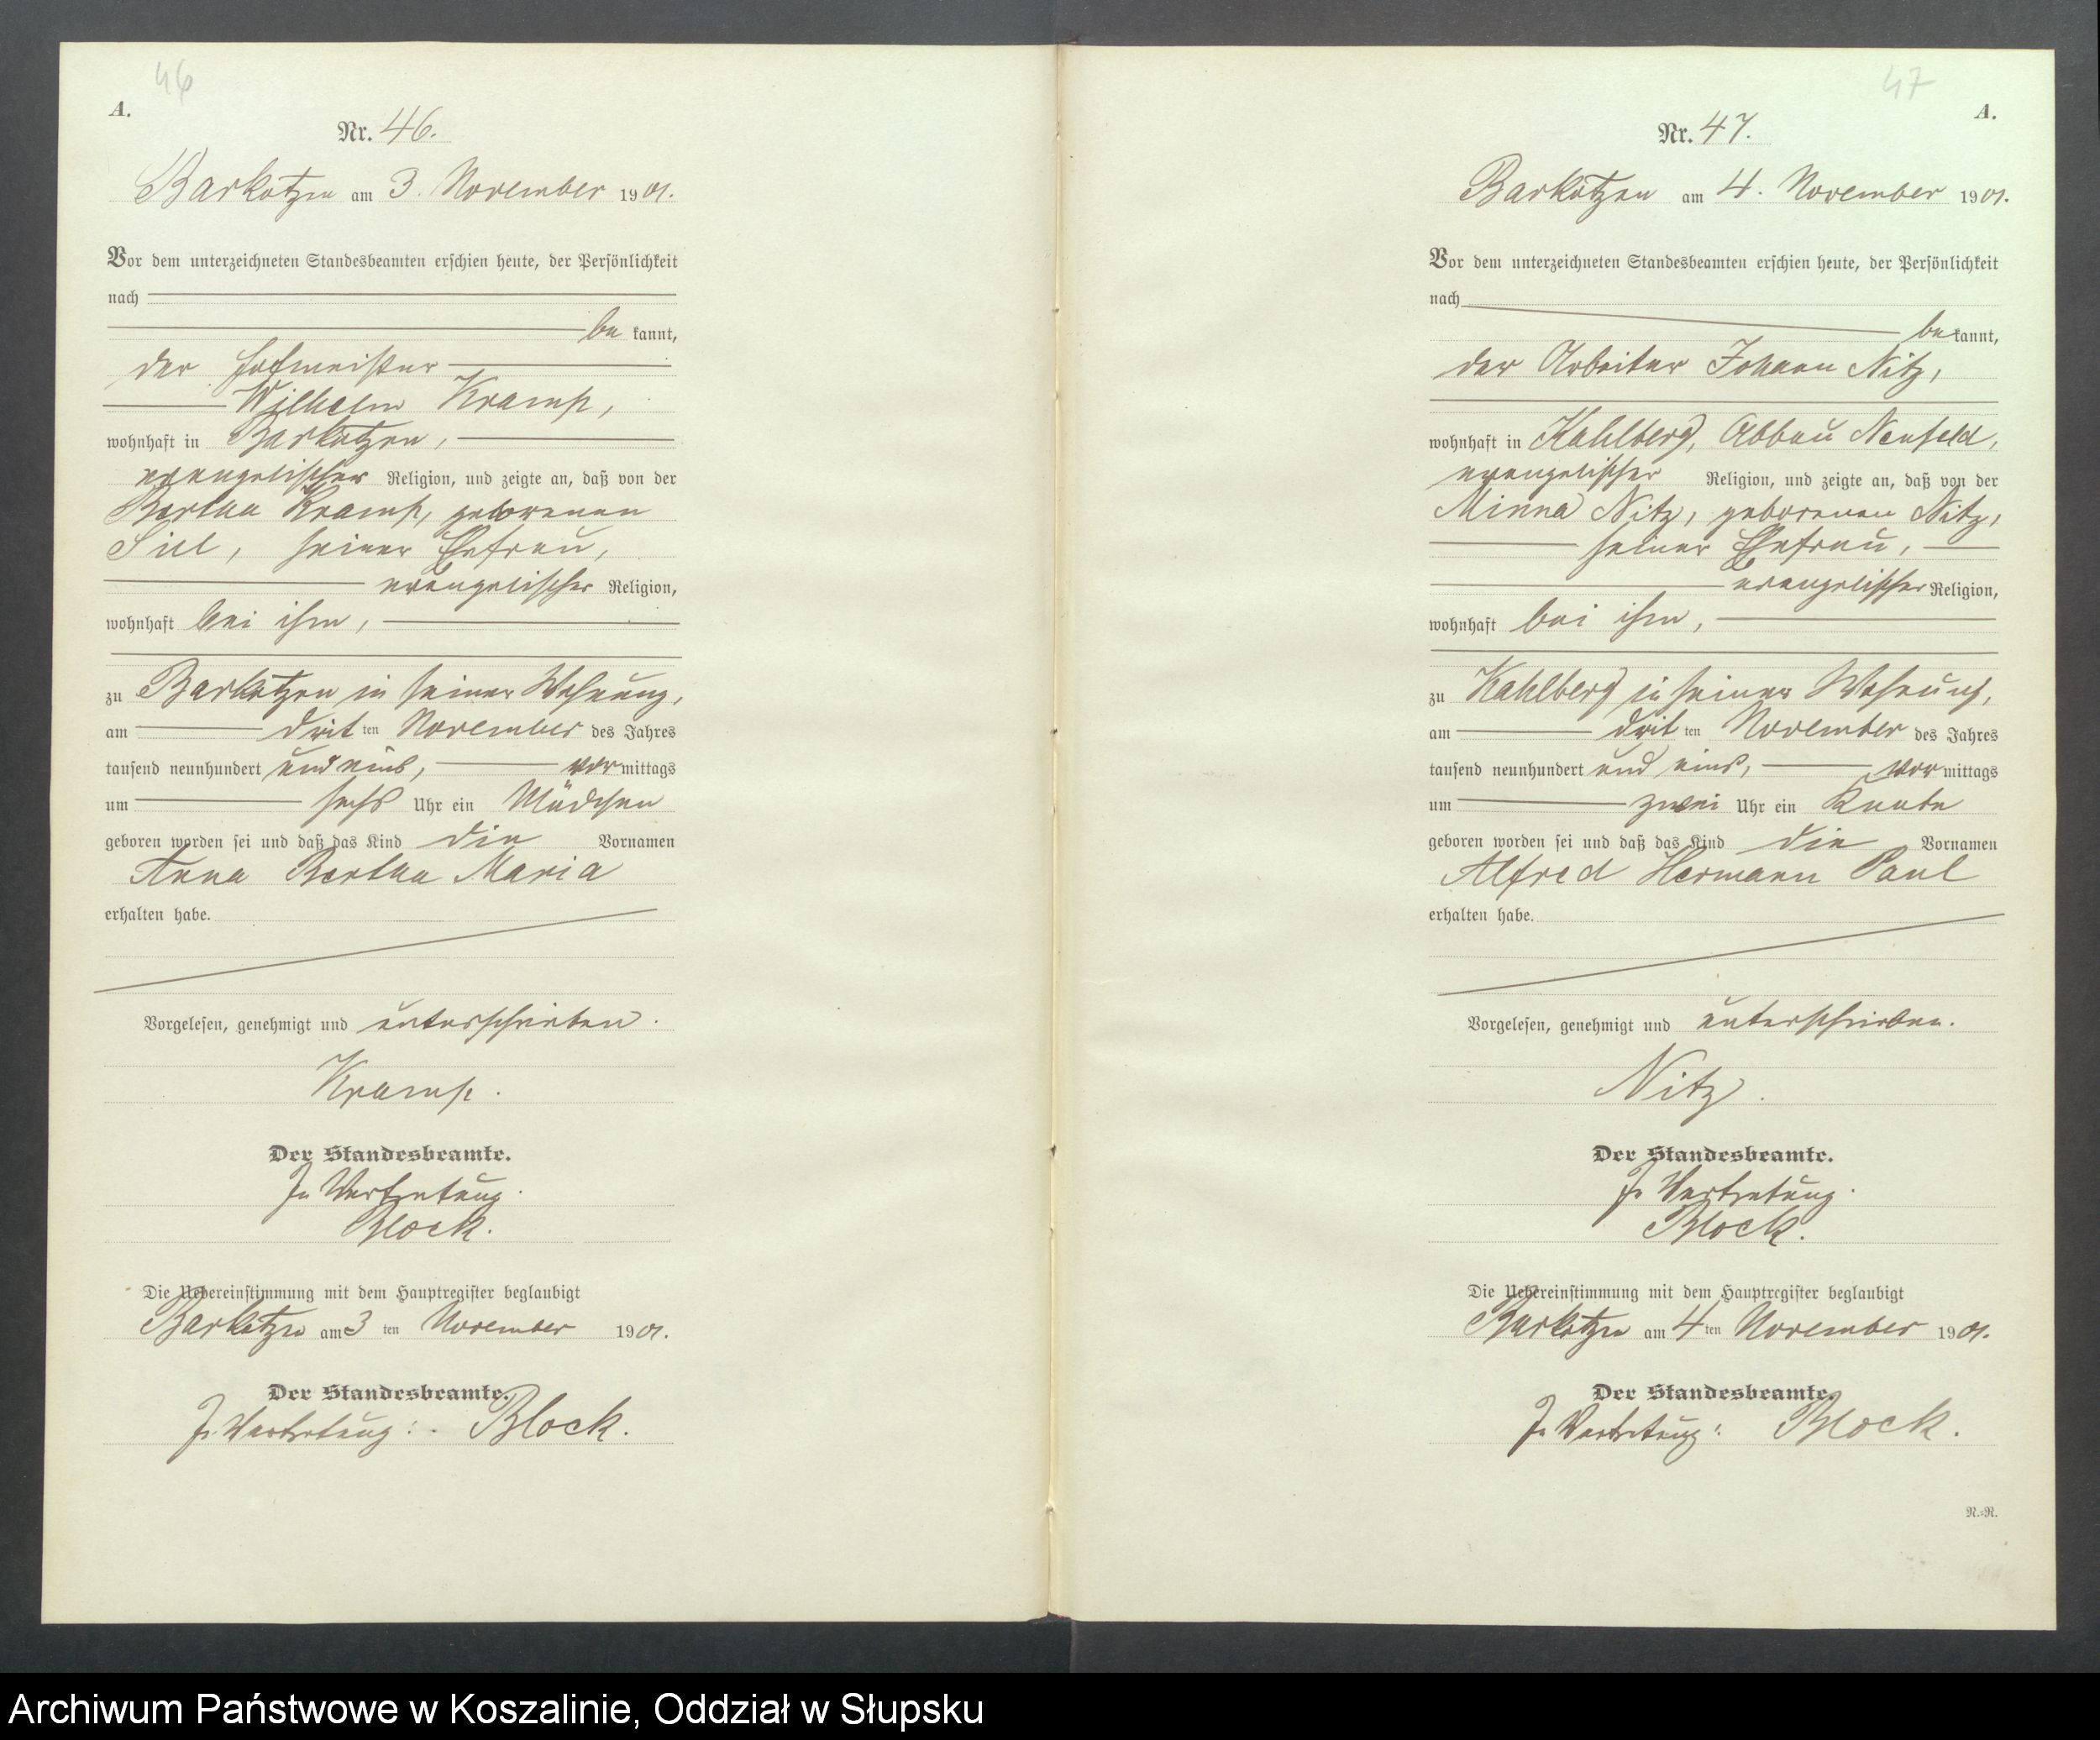 46
A.
Nr. 46.
Barkotzen am 3. November 1901.
Vor dem unterzeichneten Standesbeamten erschien heute, der Persönlichkeit
nach
be kannt,
der Hofmeister
Wilhelm Kramp,
wohnhaft in Barkotzen,
evangelischer Religion, und zeigte an, daß von der
Bertha Kramp, geborenen
Siel, seiner Ehefrau,
evangelischer Religion,
wohnhaft bei ihm,
zu Barkotzen in seiner Wohnung,
am drit ten November des Jahres
tausend neunhundert und eins, vor mittags
um sechs Uhr ein Mädchen
geboren worden sei und daß das Kind die Vornamen
Anna Bertha Maria
erhalten habe.
Vorgelesen, genehmigt und unterschrieben.
Kramp.
Der Standesbeamte.
In Vertretung.
Block.
Die Uebereinstimmung mit dem Hauptregister beglaubigt
Barkotzen am 3 ten November 1901.
Der Standesbeamte.
In Vertretung: Block.
47
A.
Nr. 47.
Barkotzen am 4. November 1901.
Vor dem unterzeichneten Standesbeamten erschien heute, der Persönlichkeit
nach
be kannt,
der Arbeiter Johann Nitz,
wohnhaft in Kahlberg, Abbau Neufeld,
evangelischer Religion, und zeigte an, daß von der
Minna Nitz, geborenen Nitz,
seiner Ehefrau,
evangelischer Religion,
wohnhaft bei ihm,
zu Kahlberg in seiner Wohnung,
am drit ten November des Jahres
tausend neunhundert und eins, vor mittags
um zwei Uhr ein Knabe
geboren worden sei und daß das Kind die Vornamen
Alfred Hermann Paul
erhalten habe.
Vorgelesen, genehmigt und unterschrieben.
Nitz.
Der Standesbeamte.
In Vertretung.
Block.
Die Uebereinstimmung mit dem Hauptregister beglaubigt
Barkotzen am 4 ten November 1901.
Der Standesbeamte.
In Vertretung: Block.
N.-R.
Archiwum Państwowe w Koszalinie, Oddział w Słupsku